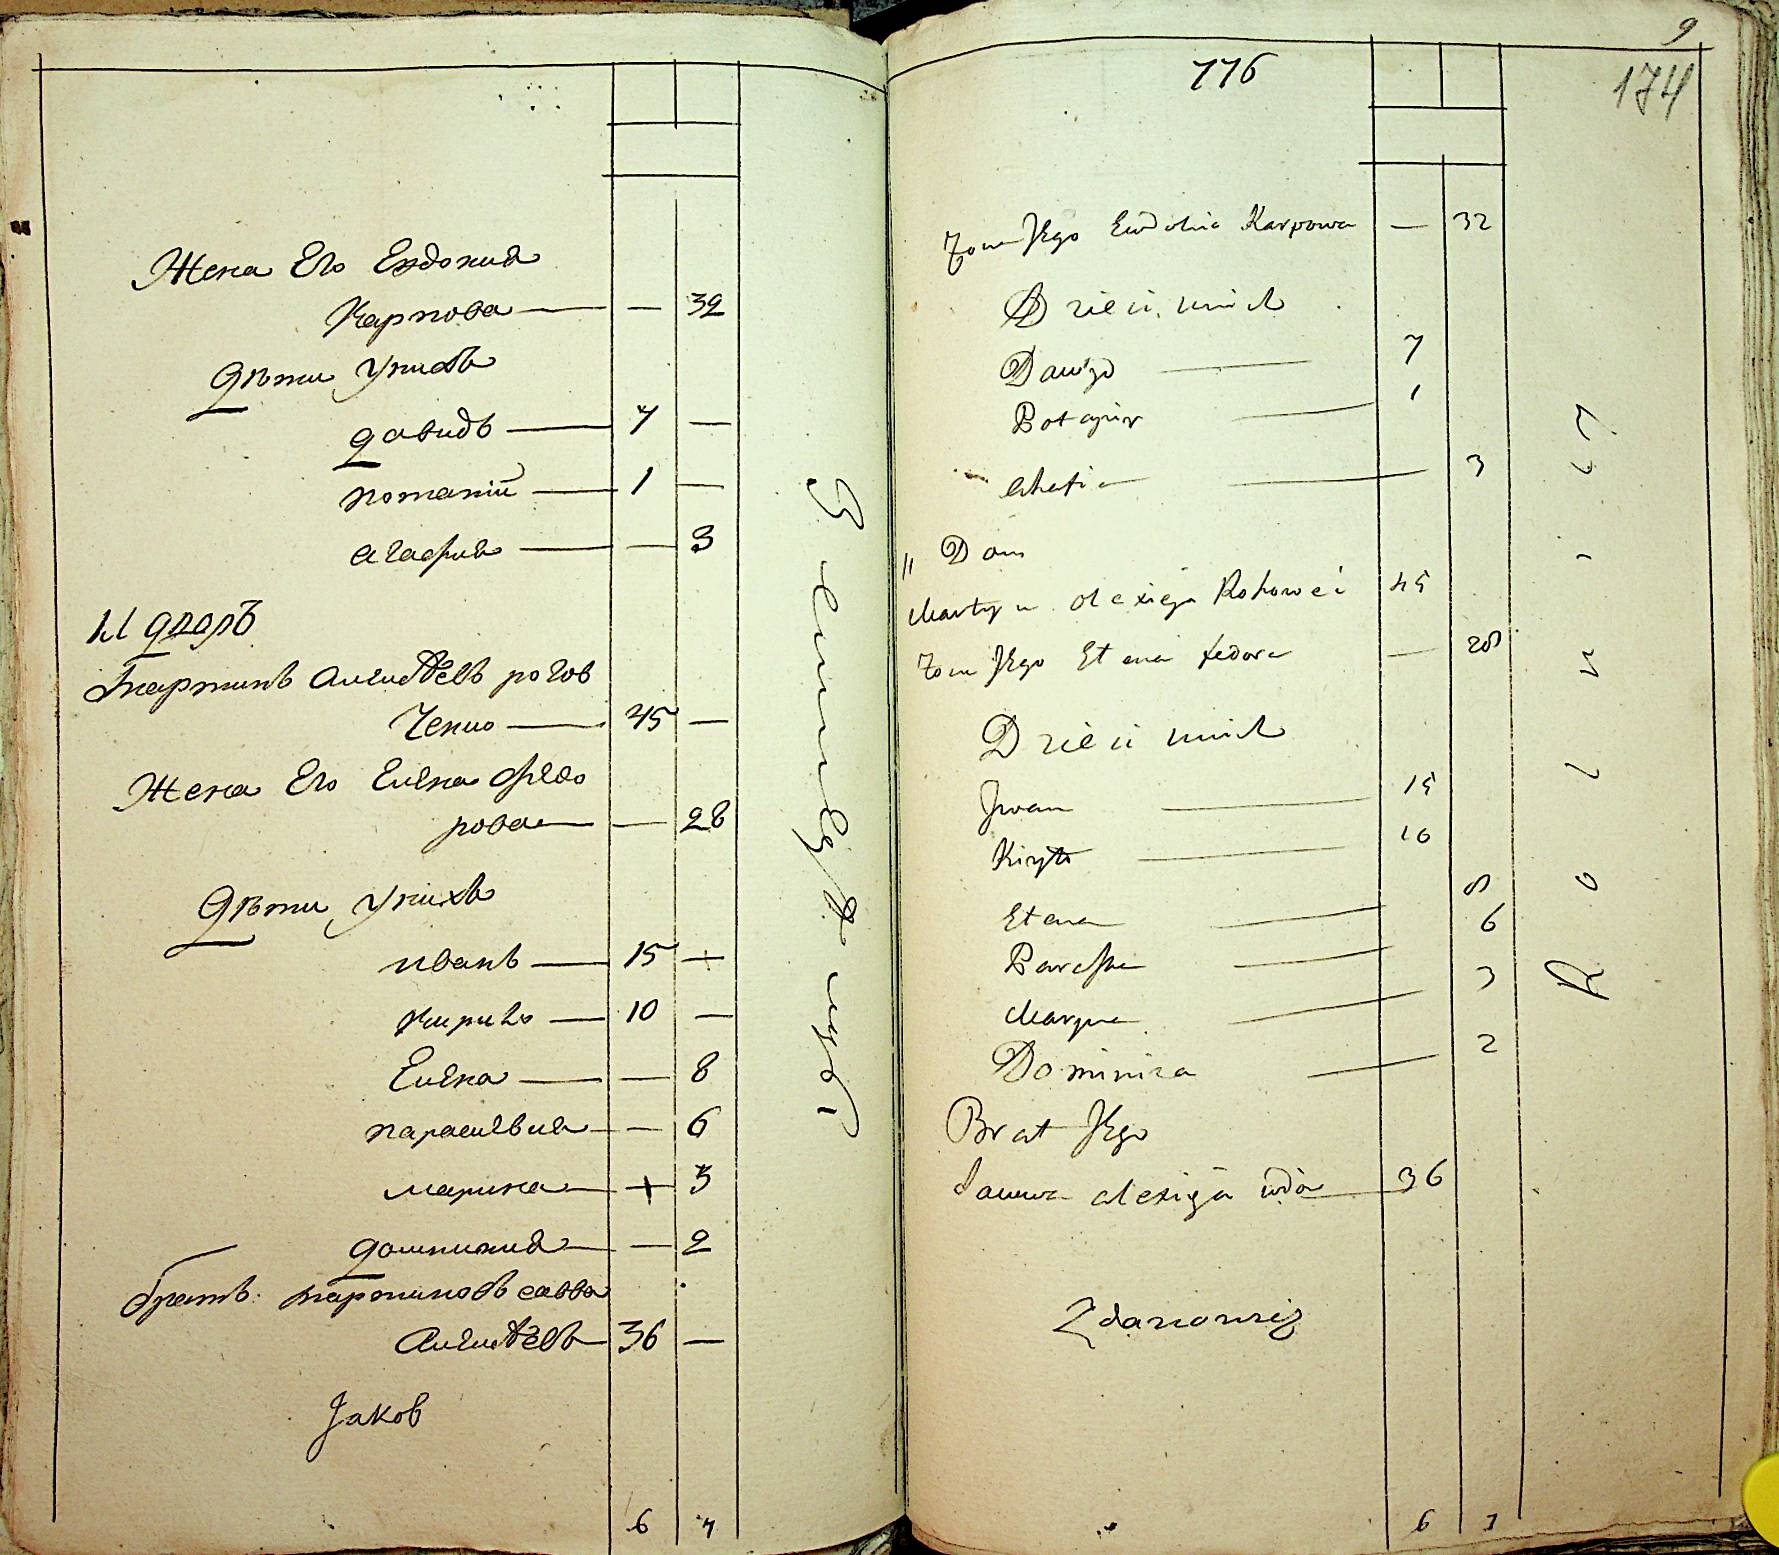 Жена Его Евдокия
Карпова — — 32
Дѣти у нихъ
Давидъ — 7 —
потапий — 1 —
агафия — — 3
11 дворъ
Мартинъ Алексѣевъ рогов
ченко — 45 —
Жена Его Елена Федо
рова — — 28
Дѣти у нихъ
иванъ — 15 —
кирило — 10 —
Елена — — 8
параскевия — — 6
марина — — 3
домникия — — 2
братъ мартиновъ савва
Алексѣевъ — 36 —
Jаков
6 7
9
776
174
Zona Jego Ewdokia Karpowa — 32
Dzieci u nich
Dawyd — 7
Potapiy — 1
Ahafia — 3
11 Dom
Martyn Olexieja Rohowci 45
Zona Jego Elena Fedora — 28
Dzieci u nich
Jwan — 15
Kiryło — 10
Elena — 8
Paraska — 6
Maryna — 3
Dominica — 2
Brat Jego
Sawwa Alexieja 36
Zdanowicz
6 7